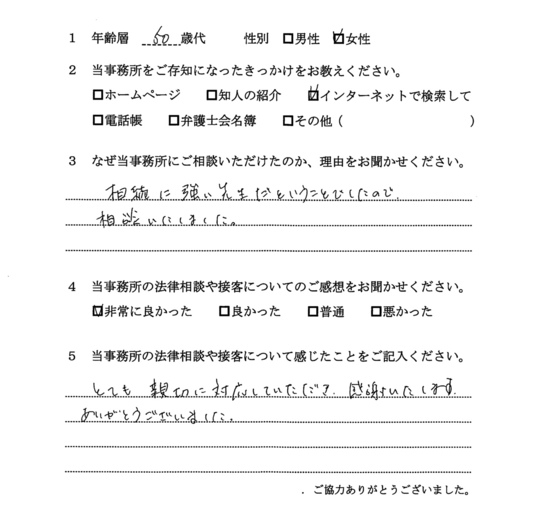 1 年齢層 50 歳代 性別 □男性 ☑女性
2 当事務所をご存知になったきっかけをお教えください。
□ホームページ □知人の紹介 ☑インターネットで検索して
□電話帳 □弁護士会名簿 □その他 ( )
3 なぜ当事務所にご相談いただけたのか、理由をお聞かせください。
相続に強い先生だということでしたので、
相談いたしました。
4 当事務所の法律相談や接客についてのご感想をお聞かせください。
☑非常に良かった □良かった □普通 □悪かった
5 当事務所の法律相談や接客について感じたことをご記入ください。
とても親切に対応していただき、感謝いたします。
ありがとうございました。
ご協力ありがとうございました。